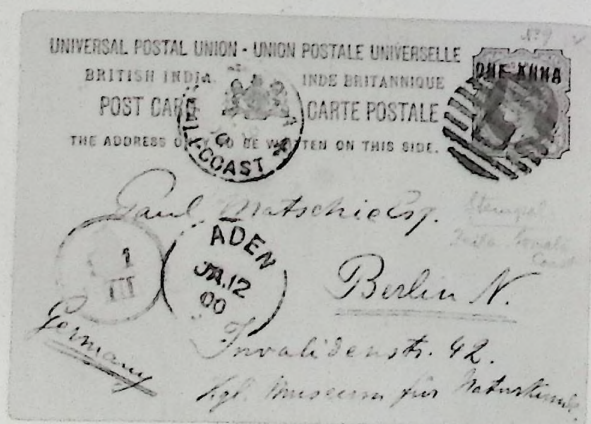 UNIVERSAL POSTAL UNION - UNION POSTALE UNIVERSELLE
BRITISH INDIA INDE BRITANNIQUE
POST CARD CARTE POSTALE
THE ADDRESS ONLY TO BE WRITTEN ON THIS SIDE.
ONE ANNA
COAST
Paul Matschie Esq.
ADEN
JA.12
00
1
III
Berlin N.
Germany
Invalidenstr. 42.
Kgl. Museum für Naturkunde